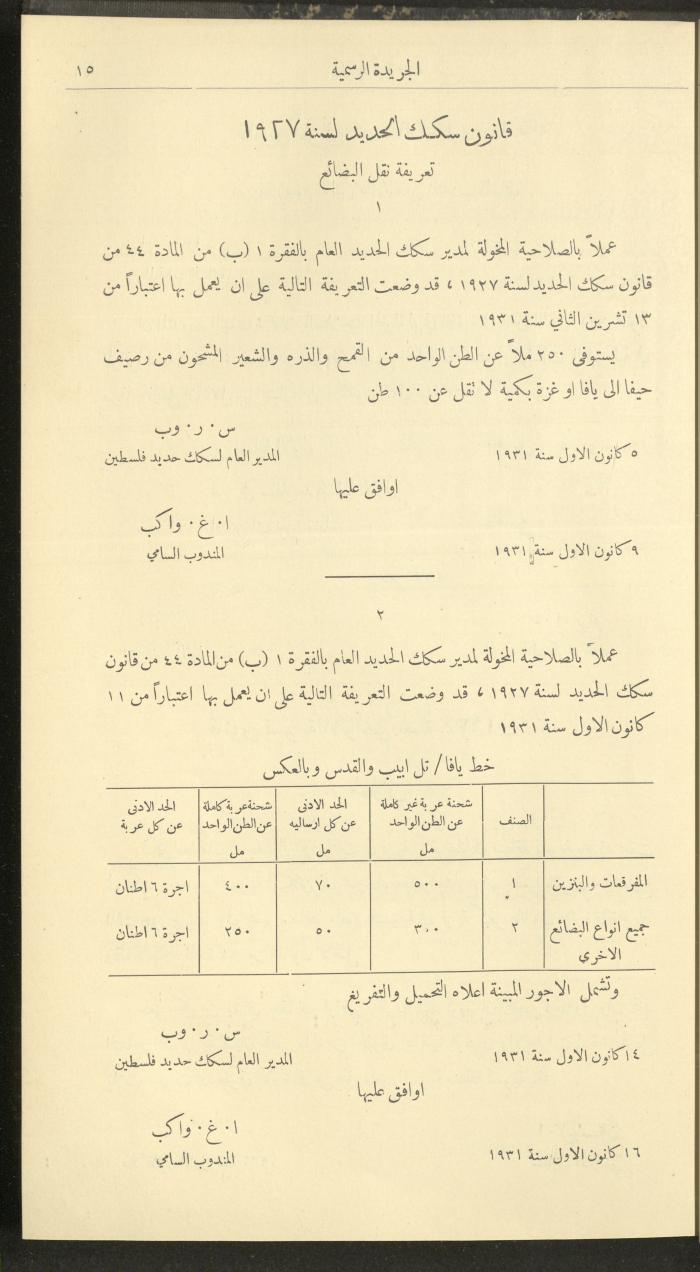 الجريدة الرسمية ١٥
قانون سكك الحديد لسنة ١٩٢٧
تعريفة نقل البضائع
١
عملاً بالصلاحية المخولة لمدير سكك الحديد العام بالفقرة ١ (ب) من المادة ٤٤ من
قانون سكك الحديد لسنة ١٩٢٧ ، قد وضعت التعريفة التالية على ان يعمل بها اعتباراً من
١٣ تشرين الثاني سنة ١٩٣١
يستوفى ٢٥٠ ملاً عن الطن الواحد من القمح والذره والشعير المشحون من رصيف
حيفا الى يافا او غزة بكمية لا تقل عن ١٠٠ طن
س . ر . وب
٥ كانون الاول سنة ١٩٣١ المدير العام لسكك حديد فلسطين
اوافق عليها
ا . غ . واكب
٩ كانون الاول سنة ١٩٣١ المندوب السامي
٢
عملاً بالصلاحية المخولة لمدير سكك الحديد العام بالفقرة ١ (ب) من المادة ٤٤ من قانون
سكك الحديد لسنة ١٩٢٧ ، قد وضعت التعريفة التالية على ان يعمل بها اعتباراً من ١١
كانون الاول سنة ١٩٣١
خط يافا / تل ابيب والقدس وبالعكس
الصنف شحنة عربة غير كاملة الحد الادنى شحنة عربة كاملة الحد الادنى
عن الطن الواحد عن كل ارساليه عن الطن الواحد عن كل عربة
مل مل مل
المفرقعات والبنزين ١ ٥٠٠ ٧٠ ٤٠٠ اجرة ٦ اطنان
جميع انواع البضائع ٢ ٣٠٠ ٥٠ ٢٥٠ اجرة ٦ اطنان
الاخرى
وتشمل الاجور المبينة اعلاه التحميل والتفريغ
س . ر . وب
١٤ كانون الاول سنة ١٩٣١ المدير العام لسكك حديد فلسطين
اوافق عليها
ا . غ . واكب
١٦ كانون الاول سنة ١٩٣١ المندوب السامي